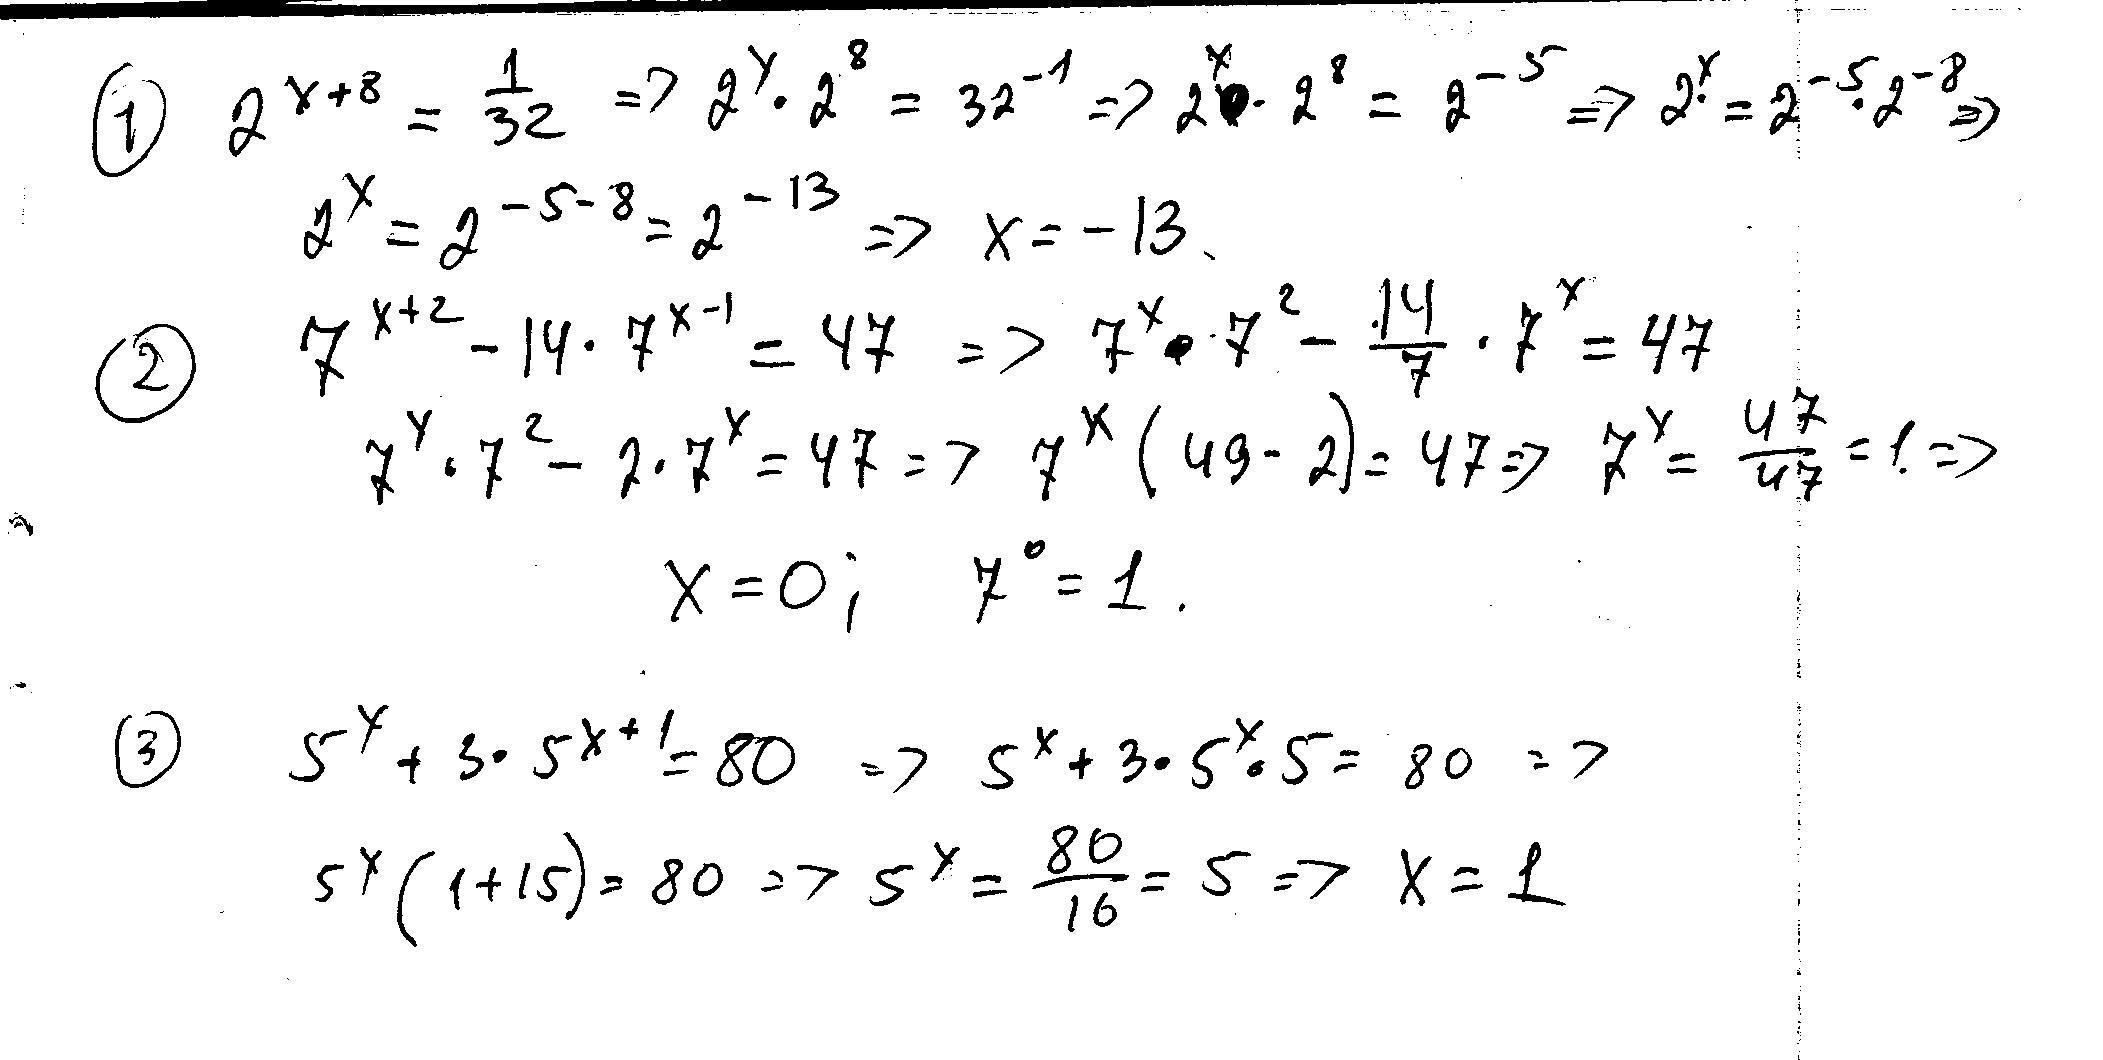 ① 2^{x+8} = \frac{1}{32} => 2^x · 2^8 = 32^{-1} => 2^x · 2^8 = 2^{-5} => 2^x = 2^{-5} · 2^{-8} =>
2^x = 2^{-5-8} = 2^{-13} => x = -13.
② 7^{x+2} - 14 · 7^{x-1} = 47 => 7^x · 7^2 - \frac{14}{7} · 7^x = 47
7^x · 7^2 - 2 · 7^x = 47 => 7^x (49 - 2) = 47 => 7^x = \frac{47}{47} = 1. =>
x = 0; 7^0 = 1.
③ 5^x + 3 · 5^{x+1} = 80 => 5^x + 3 · 5^x · 5 = 80 =>
5^x (1 + 15) = 80 => 5^x = \frac{80}{16} = 5 => x = 1